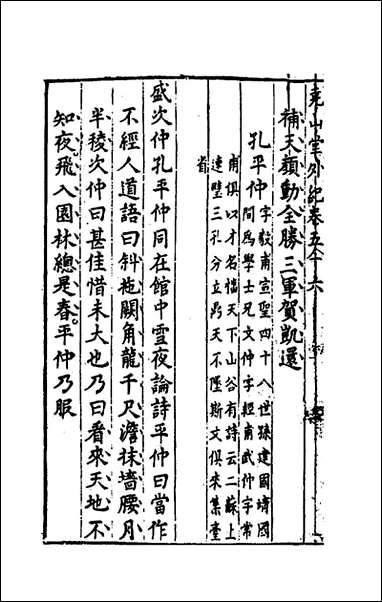 堯山堂外紀卷五十六
補天顏動全勝三軍賀凱還
孔平仲
字毅甫宣聖四十八世孫建國靖國
間爲學士兄文仲字經甫武仲字常
甫俱以才名振天下山谷有詩云二蘇上
連璧三孔分立鼎天不墜斯文俱來集臺
省
盛次仲孔平仲同在館中雪夜論詩平仲曰當作
不經人道語曰斜拖闕角龍千尺澹抹墻腰月
半稜次仲曰甚佳惜未大也乃曰看來天地不
知夜飛入園林總是春平仲乃服